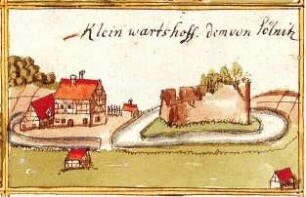 Klein wartshoff. dem von Pölnitz